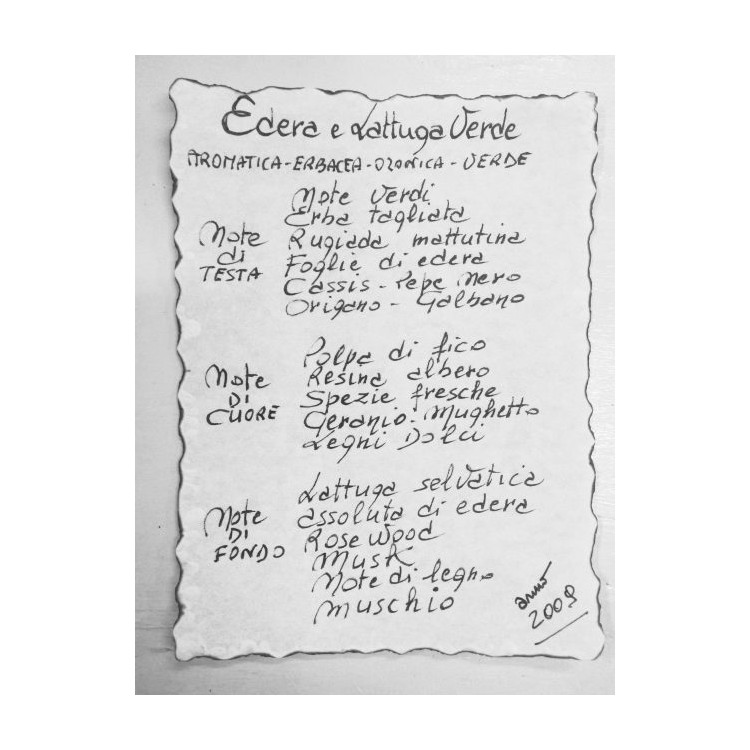 Edera e Lattuga Verde
AROMATICA-ERBACEA-OZONICA-VERDE
Note di TESTA
Note Verdi
Erba tagliata
Rugiada mattutina
Foglie di edera
Cassis - Pepe Nero
Origano - Galbano
Note DI CUORE
Polpa di fico
Resina albero
Spezie fresche
Geranio. Mughetto
Legni Dolci
Note DI FONDO
Lattuga selvatica
assoluta di edera
Rose Wood
Musk
Note di legno
muschio
anno
2009